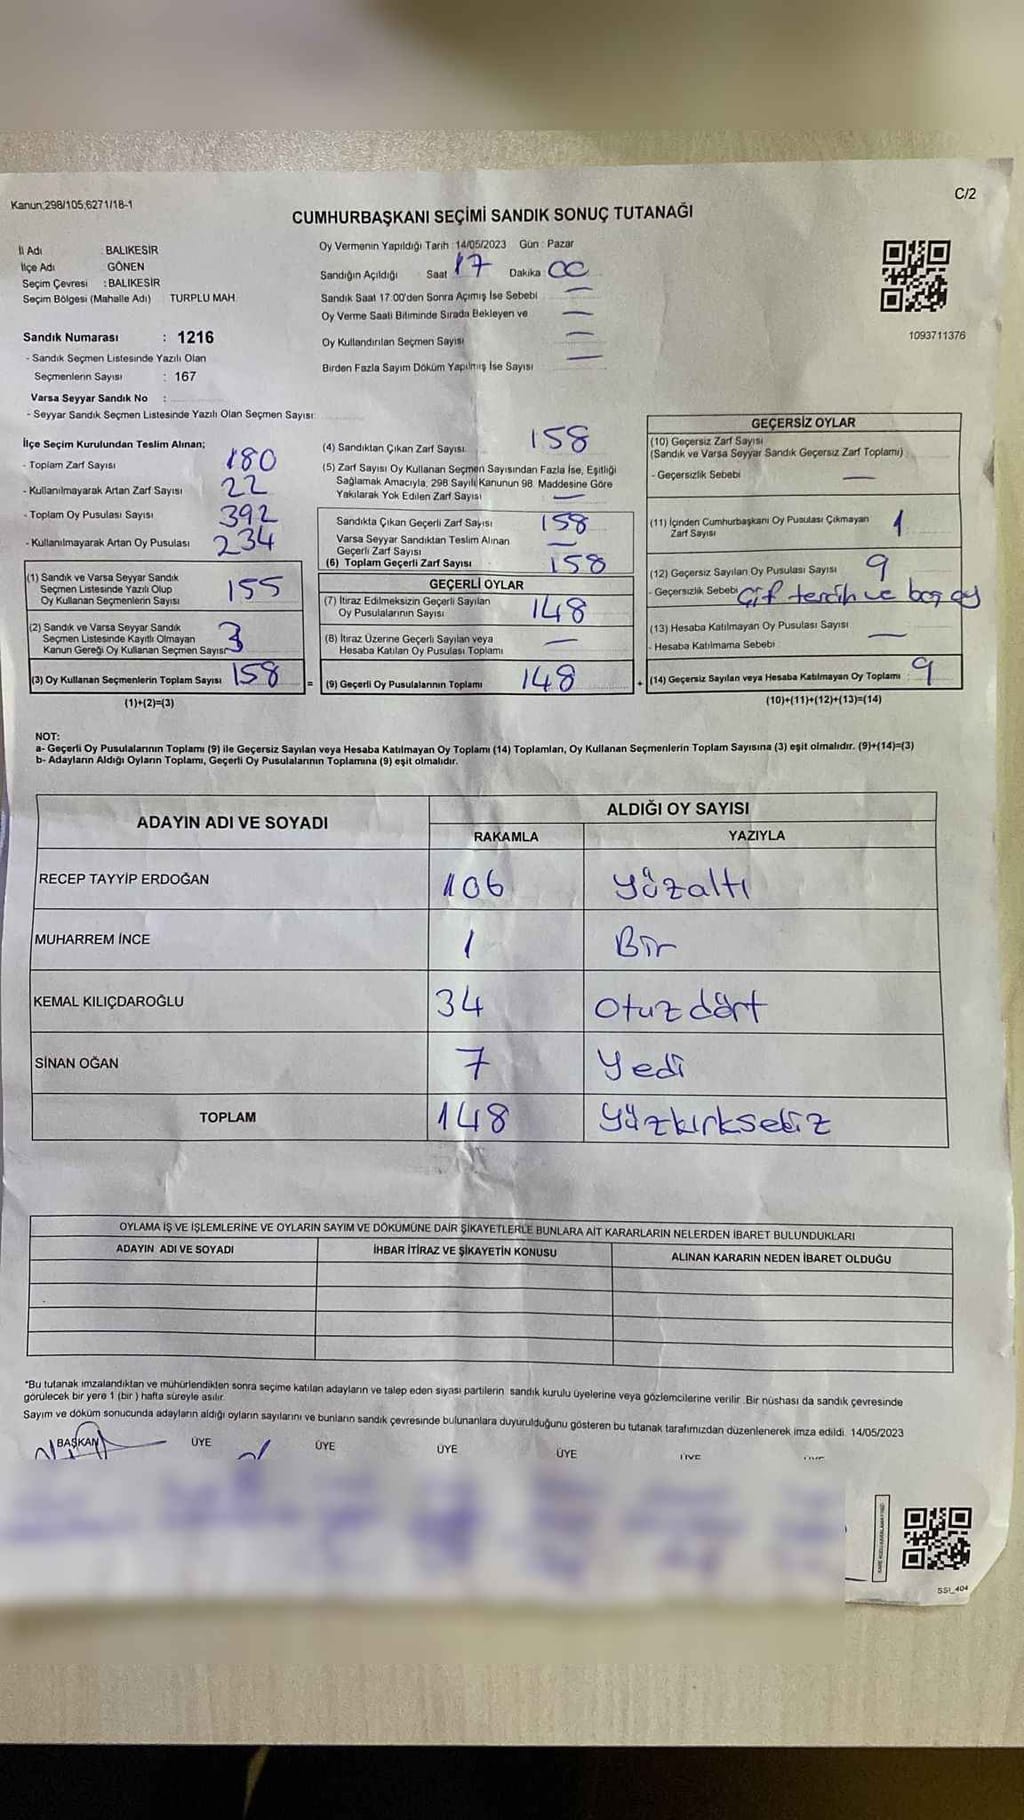 Kanun;298/105;6271/18-1
C/2
CUMHURBAŞKANI SEÇİMİ SANDIK SONUÇ TUTANAĞI
İl Adı : BALIKESİR
İlçe Adı GÖNEN
Seçim Çevresi : BALIKESİR
Seçim Bölgesi (Mahalle Adı) TURPLU MAH.
Sandık Numarası : 1216
- Sandık Seçmen Listesinde Yazılı Olan
Seçmenlerin Sayısı : 167
Varsa Seyyar Sandık No :
- Seyyar Sandık Seçmen Listesinde Yazılı Olan Seçmen Sayısı:
Oy Vermenin Yapıldığı Tarih : 14/05/2023 Gün : Pazar
Sandığın Açıldığı Saat 17 Dakika : 00
Sandık Saat 17:00'den Sonra Açımış İse Sebebi —
Oy Verme Saati Bitiminde Sırada Bekleyen ve —
Oy Kullandırılan Seçmen Sayısı —
Birden Fazla Sayım Döküm Yapılmış İse Sayısı —
1093711376
İlçe Seçim Kurulundan Teslim Alınan;
- Toplam Zarf Sayısı 180
- Kullanılmayarak Artan Zarf Sayısı 22
- Toplam Oy Pusulası Sayısı 392
- Kullanılmayarak Artan Oy Pusulası 234
(1) Sandık ve Varsa Seyyar Sandık
Seçmen Listesinde Yazılı Olup
Oy Kullanan Seçmenlerin Sayısı 155
(2) Sandık ve Varsa Seyyar Sandık
Seçmen Listesinde Kayıtlı Olmayan
Kanun Gereği Oy Kullanan Seçmen Sayısı 3
(3) Oy Kullanan Seçmenlerin Toplam Sayısı 158
(1)+(2)=(3)
=
(4) Sandıktan Çıkan Zarf Sayısı 158
(5) Zarf Sayısı Oy Kullanan Seçmen Sayısından Fazla İse, Eşitliği
Sağlamak Amacıyla, 298 Sayılı Kanunun 98. Maddesine Göre
Yakılarak Yok Edilen Zarf Sayısı —
Sandıkta Çıkan Geçerli Zarf Sayısı 158
Varsa Seyyar Sandıktan Teslim Alınan
Geçerli Zarf Sayısı —
(6) Toplam Geçerli Zarf Sayısı 158
GEÇERLİ OYLAR
(7) İtiraz Edilmeksizin Geçerli Sayılan
Oy Pusulalarının Sayısı 148
(8) İtiraz Üzerine Geçerli Sayılan veya
Hesaba Katılan Oy Pusulası Toplamı —
(9) Geçerli Oy Pusulalarının Toplamı 148
+
GEÇERSİZ OYLAR
(10) Geçersiz Zarf Sayısı
(Sandık ve Varsa Seyyar Sandık Geçersiz Zarf Toplamı)
- Geçersizlik Sebebi —
(11) İçinden Cumhurbaşkanı Oy Pusulası Çıkmayan
Zarf Sayısı 1
(12) Geçersiz Sayılan Oy Pusulası Sayısı 9
- Geçersizlik Sebebi Çif tercih ve boş oy
(13) Hesaba Katılmayan Oy Pusulası Sayısı —
- Hesaba Katılmama Sebebi
(14) Geçersiz Sayılan veya Hesaba Katılmayan Oy Toplamı : 9
(10)+(11)+(12)+(13)=(14)
NOT:
a- Geçerli Oy Pusulalarının Toplamı (9) ile Geçersiz Sayılan veya Hesaba Katılmayan Oy Toplamı (14) Toplamları, Oy Kullanan Seçmenlerin Toplam Sayısına (3) eşit olmalıdır. (9)+(14)=(3)
b- Adayların Aldığı Oyların Toplamı, Geçerli Oy Pusulalarının Toplamına (9) eşit olmalıdır.
ADAYIN ADI VE SOYADI ALDIĞI OY SAYISI
RAKAMLA YAZIYLA
RECEP TAYYİP ERDOĞAN 106 yüzaltı
MUHARREM İNCE 1 Bir
KEMAL KILIÇDAROĞLU 34 otuz dört
SİNAN OĞAN 7 yedi
TOPLAM 148 yüzkırksekiz
OYLAMA İŞ VE İŞLEMLERİNE VE OYLARIN SAYIM VE DÖKÜMÜNE DAİR ŞİKAYETLERLE BUNLARA AİT KARARLARIN NELERDEN İBARET BULUNDUKLARI
ADAYIN ADI VE SOYADI İHBAR İTİRAZ VE ŞİKAYETİN KONUSU ALINAN KARARIN NEDEN İBARET OLDUĞU
*Bu tutanak imzalandıktan ve mühürlendikten sonra seçime katılan adayların ve talep eden siyasi partilerin sandık kurulu üyelerine veya gözlemcilerine verilir. Bir nüshası da sandık çevresinde
görülecek bir yere 1 (bir ) hafta süreyle asılır.
Sayım ve döküm sonucunda adayların aldığı oyların sayılarını ve bunların sandık çevresinde bulunanlara duyurulduğunu gösteren bu tutanak tarafımızdan düzenlenerek imza edildi. 14/05/2023
BAŞKAN ÜYE ÜYE ÜYE ÜYE ÜYE
SSİ_404